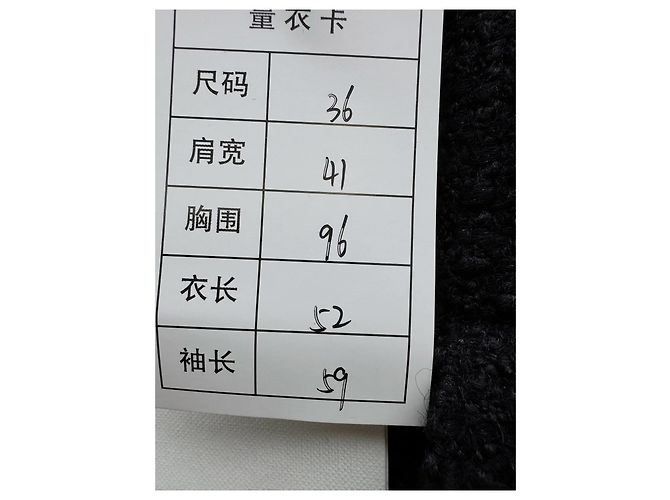 量衣卡
尺码 36
肩宽 41
胸围 96
衣长 52
袖长 59